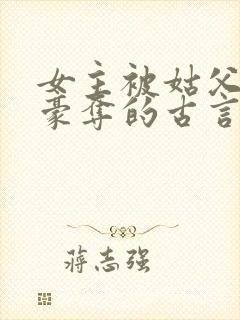 女主被姑父
豪夺的古言
蒋志强